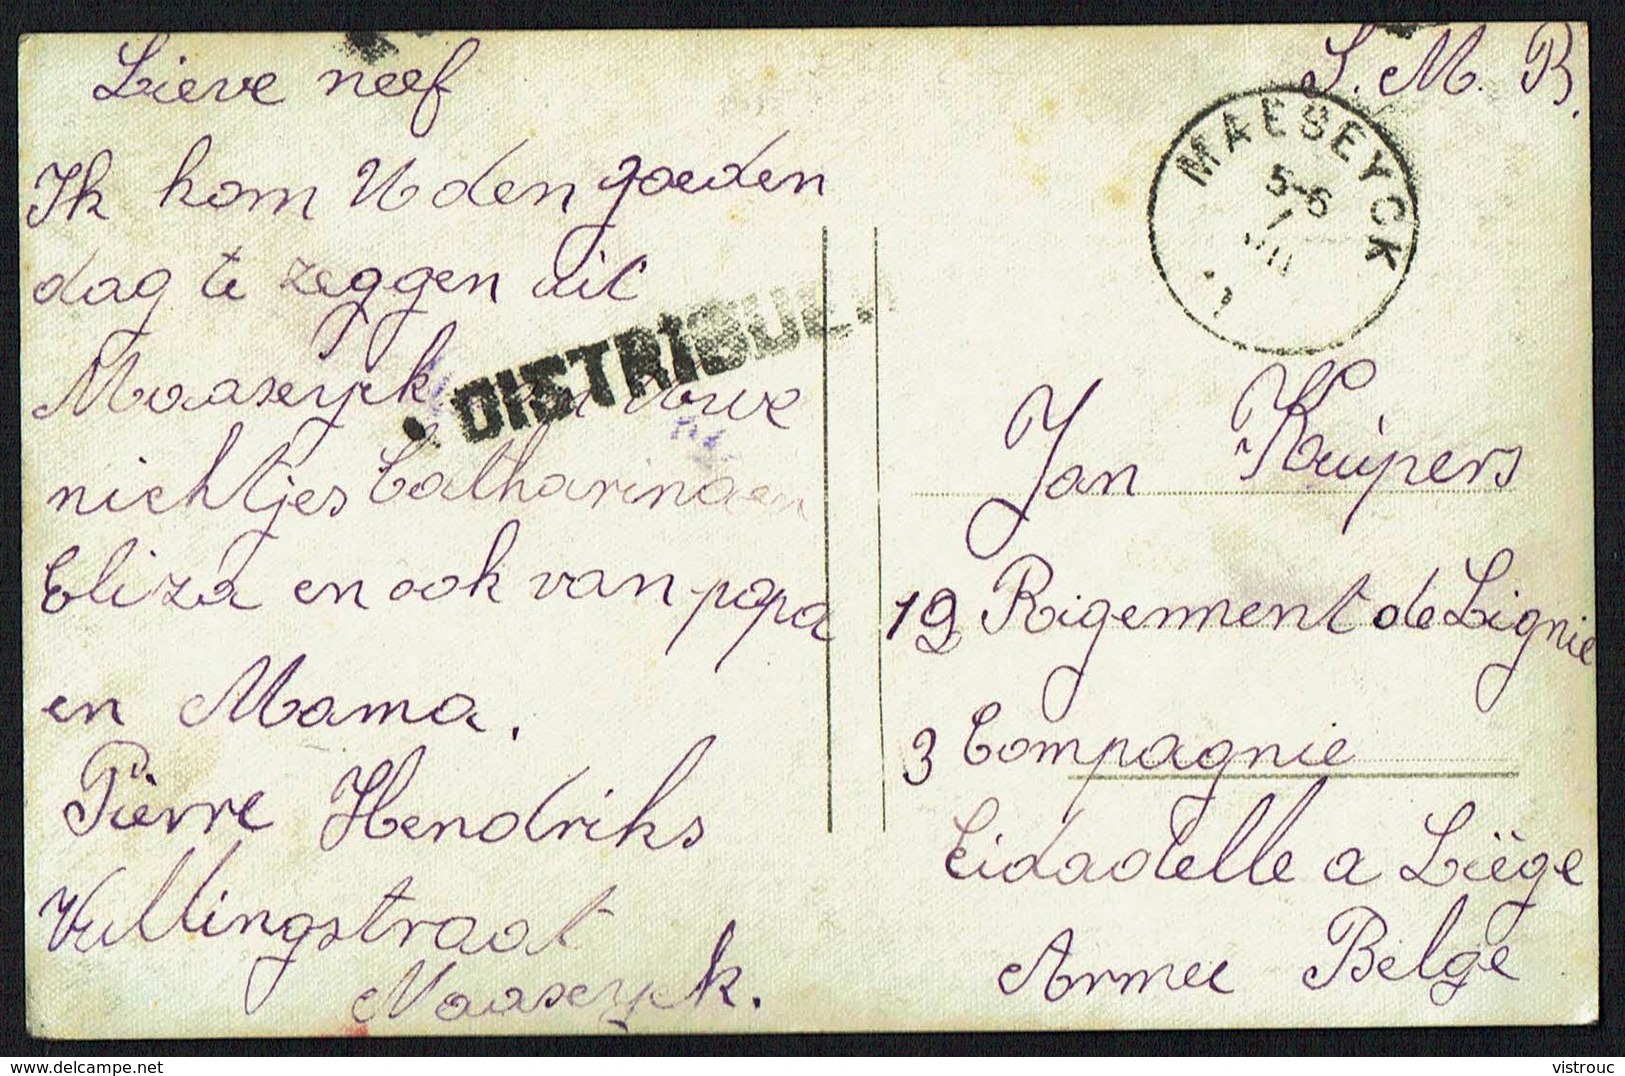 Lieve neef
Ik kom U den goeden
dag te zeggen uit
Maaseyck uwe
nichtjes Catharina en
Eliza en ook van papa
en Mama.
Pièrre Hendriks
Vullingstraat
Maaseyck.
DISTRIBUE
S. M. B.
MAESEYCK
5-6
1
JUI
Jan Kuipers
12 Rigement de Lignie
3 Compagnie
Cidadelle a Liège
Armee Belge
Website: vistrouc